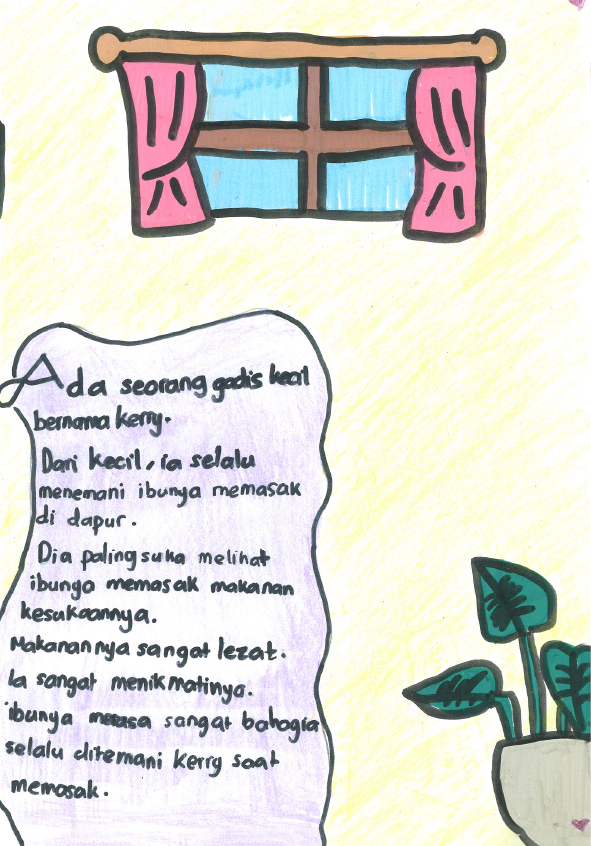 Ada seorang gadis kecil
bernama kerry.
Dari kecil, ia selalu
menemani ibunya memasak
di dapur.
Dia paling suka melihat
ibunya memasak makanan
kesukaannya.
Makanannya sangat lezat.
Ia sangat menikmatinya.
ibunya merasa sangat bahagia
selalu ditemani kerry saat
memasak.